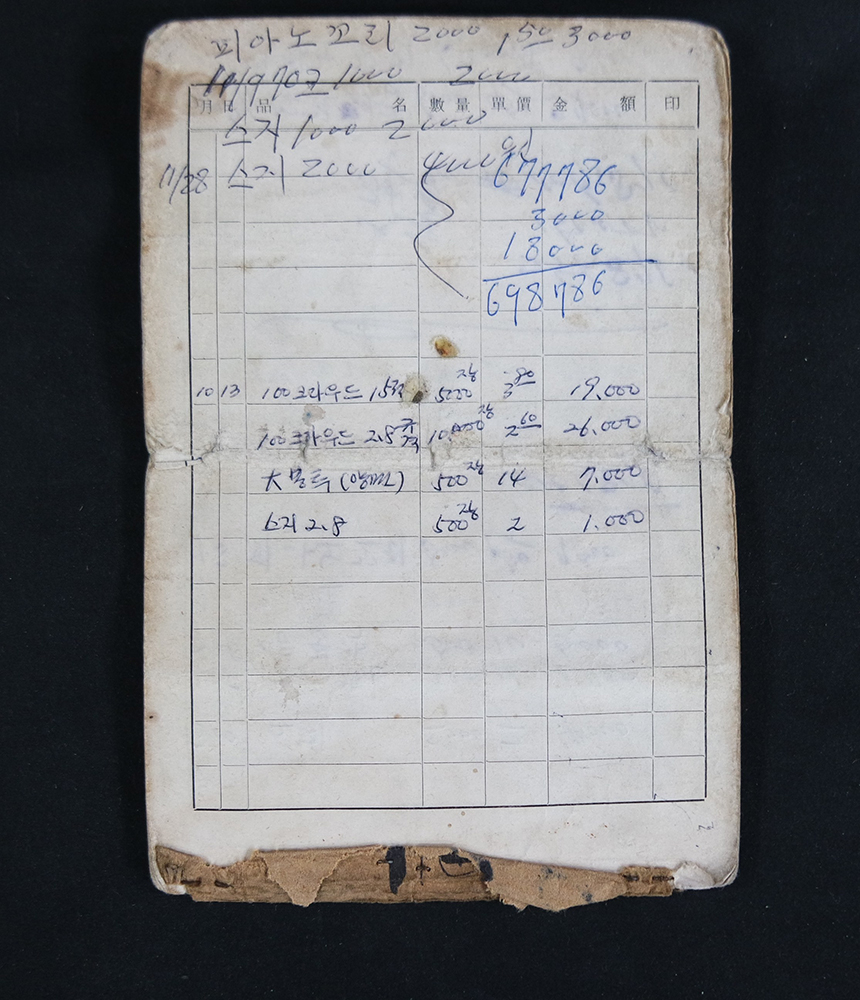 피아노꼬리 2000 1,50 3000
11/9 70고 1000 2000
月 日 品 名 數量 單價 金 額 印
스지 1000 2000
11/28 스지 2000 4000
677786
3000
18000
698786
10 13 100크라우드 5000장 3.80 19.000
100크라우드 2.8규격 10,000장 2.60 26.000
大 500장 14 7.000
스지 2.8 500장 2 1.000